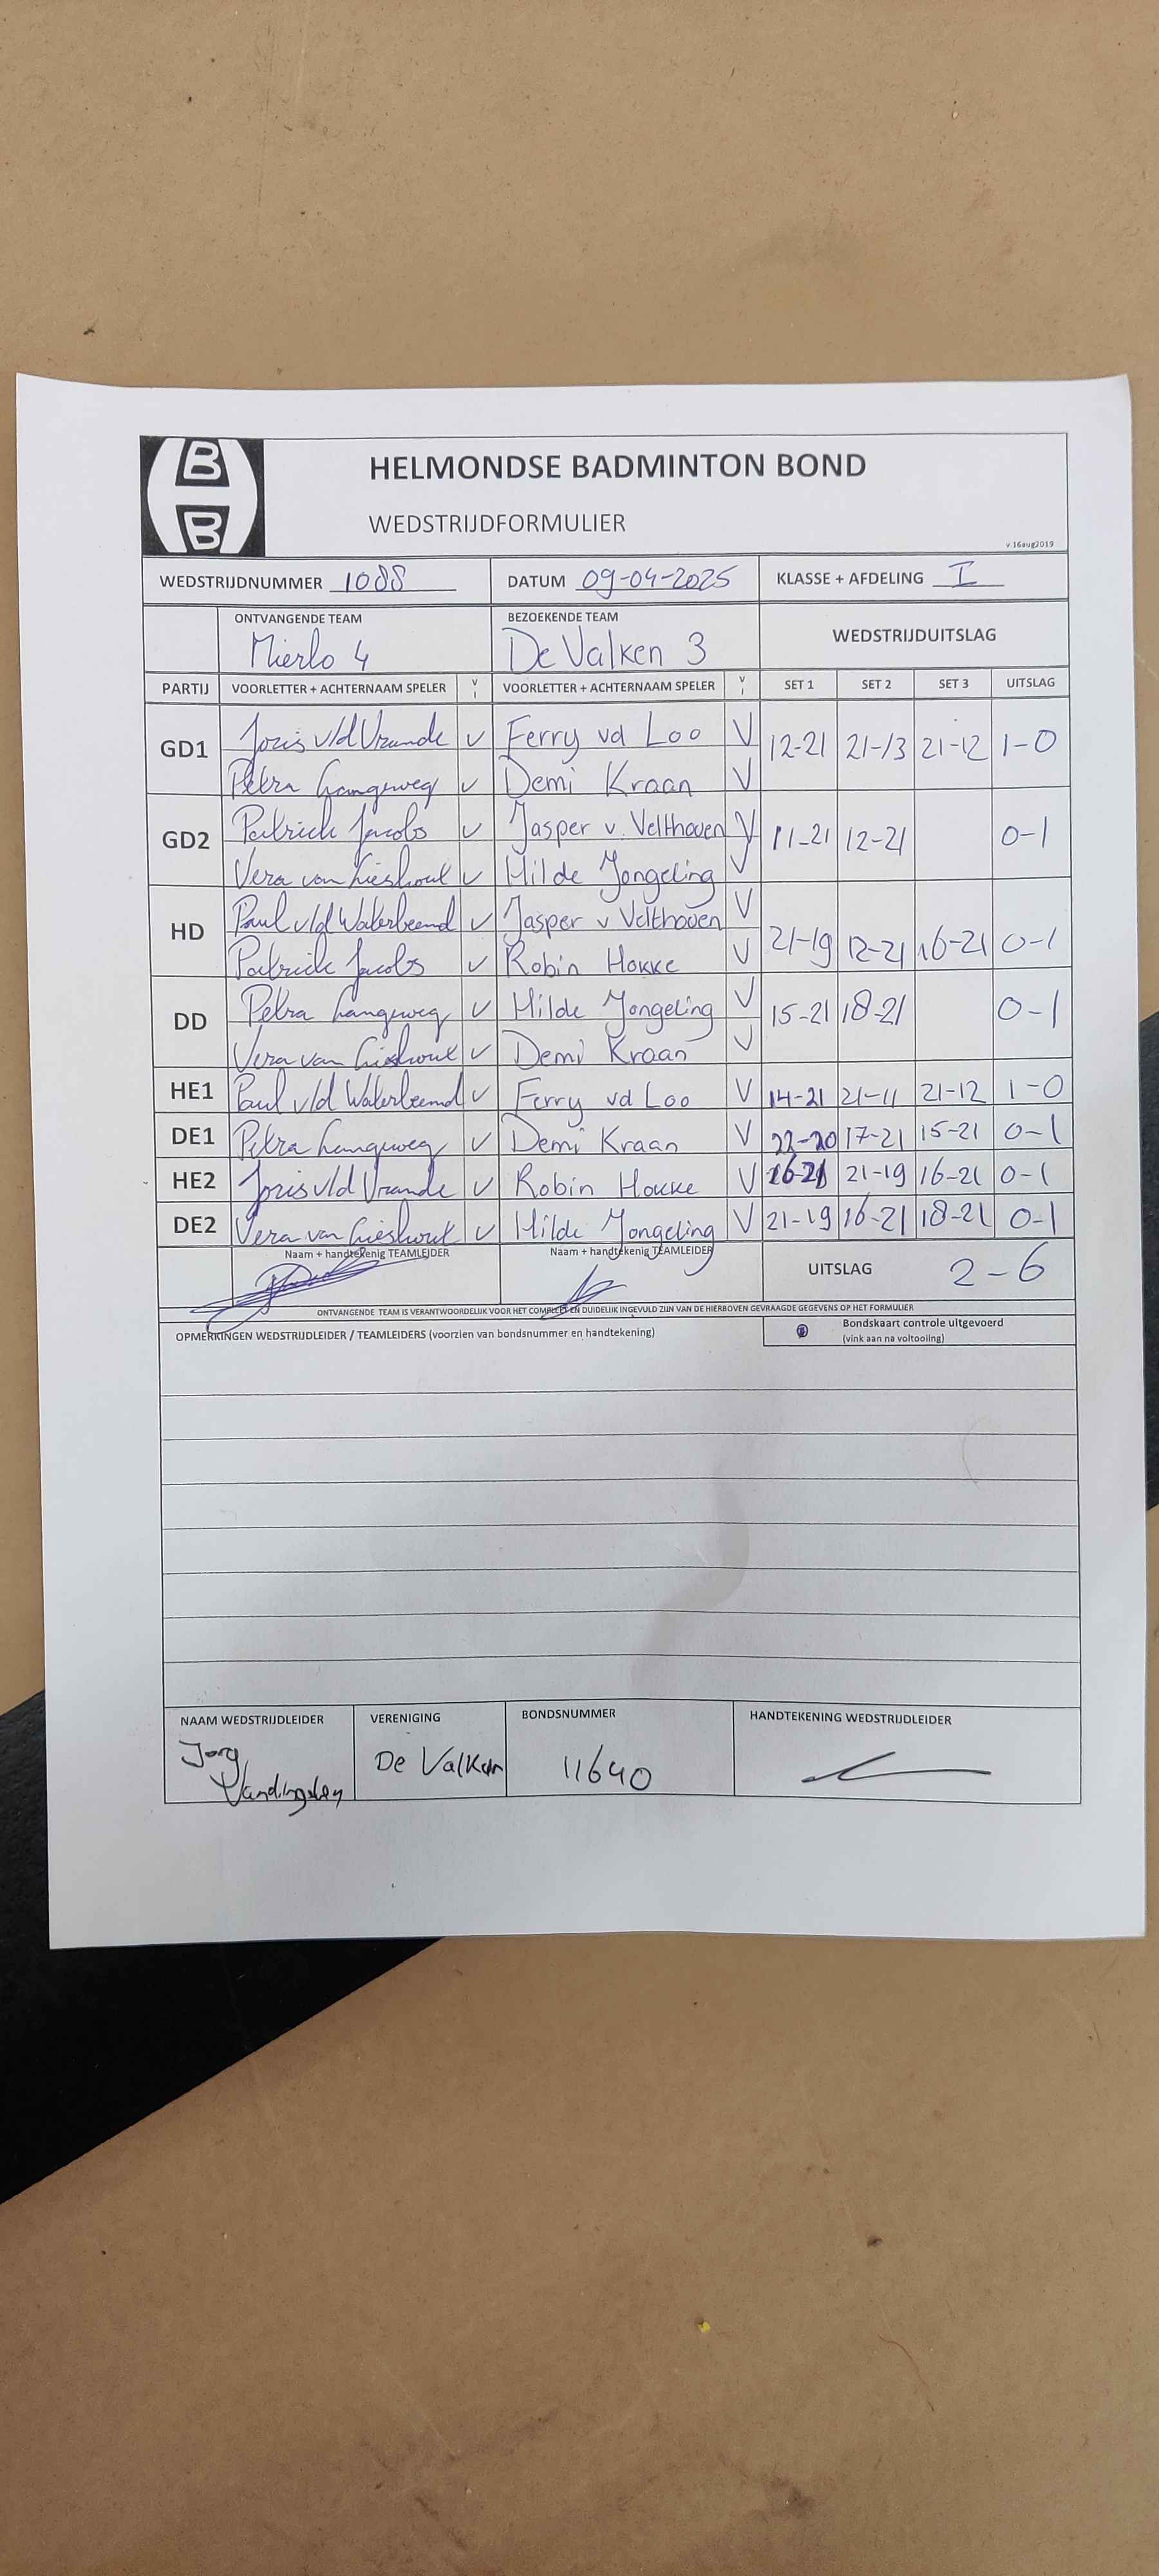 B
B
HELMONDSE BADMINTON BOND
WEDSTRIJDFORMULIER
v.16aug2019
WEDSTRIJDNUMMER 1088 DATUM 09-04-2025 KLASSE + AFDELING I
ONTVANGENDE TEAM BEZOEKENDE TEAM WEDSTRIJDUITSLAG
Mierlo 4 De Valken 3
PARTIJ VOORLETTER + ACHTERNAAM SPELER V I VOORLETTER + ACHTERNAAM SPELER V I SET 1 SET 2 SET 3 UITSLAG
GD1 Joris v/d Vrande v Ferry vd Loo V 12-21 21-13 21-12 1-0
Petra Langeweg v Demi Kraan V
GD2 Patrick Jacobs v Jasper v. Velthoven V 11-21 12-21 0-1
Vera van Lieshout v Hilde Jongeling V
HD Paul v/d Waterbeemd v Jasper v Velthoven V 21-19 12-21 16-21 0-1
Patrick Jacobs v Robin Hokke V
DD Petra Langeweg v Hilde Jongeling V 15-21 18-21 0-1
Vera van Lieshout v Demi Kraan V
HE1 Paul v/d Waterbeemd v Ferry vd Loo V 14-21 21-11 21-12 1-0
DE1 Petra Langeweg v Demi Kraan V 22-20 17-21 15-21 0-1
HE2 Joris v/d Vrande v Robin Hokke V 16-21 21-19 16-21 0-1
DE2 Vera van Lieshout v Hilde Jongeling V 21-19 16-21 18-21 0-1
Naam + handtekenig TEAMLEIDER Naam + handtekenig TEAMLEIDER UITSLAG 2-6
ONTVANGENDE TEAM IS VERANTWOORDELIJK VOOR HET COMPLEET EN DUIDELIJK INGEVULD ZIJN VAN DE HIERBOVEN GEVRAAGDE GEGEVENS OP HET FORMULIER
OPMERKINGEN WEDSTRIJDLEIDER / TEAMLEIDERS (voorzien van bondsnummer en handtekening) Bondskaart controle uitgevoerd
(vink aan na voltooiing)
NAAM WEDSTRIJDLEIDER VERENIGING BONDSNUMMER HANDTEKENING WEDSTRIJDLEIDER
Jorg De Valken 11640